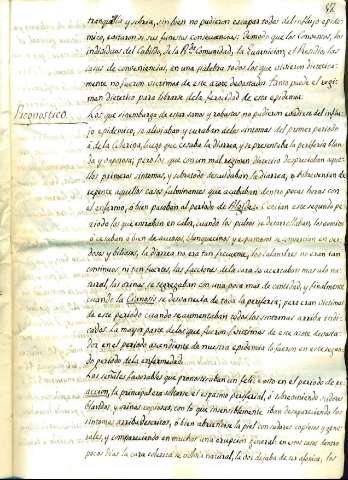 47
tranquila y sobria, si bien no pudieron escapar todos del influjo epide-
mico, evitaron sus funestas consecuencias. De modo que los Conventos, los
individuos del Cabildo, de la Rda Comunidad, la Guarnicion, el Presidio, las
casas de conveniencias, en una palabra todos los que vivieron dietetica-
mente no fueron victimas de este azote devastador. Tanto puede el regi-
men dietetico para librarse de la ferocidad de esta epidemia.
Pronostico.
Los que sin embargo de estar sanos y robustos no pudieron evadirse del influ-
jo epidemico, se aliviaban y curaban de los sintomas del primer periodo
ó de la Colerina, luego que cesaba la diarrea, y se presentaba la periferia blan-
da y vaporosa; pero los que con un mal regimen dietetico despreciaban aque-
llos primeros sintomas, y sobretodo descuidaban la diarrea, ó les sobrevenian de
repente aquellos casos fulminantes que acababan dentro pocas horas con
el enfermo, ó bien pasaban al periodo de Algidez. Vencian este segundo pe-
riodo los que entraban en calor, cuando los pulsos se desarrollaban, los vomitos
ó cesaban ó bien de acuosos, blanquecinos y espumosos se convertian en ver-
dosos y biliosos, la diarrea no era tan frecuente, los calambres no eran tan
continuos ni tan fuertes, las facciones de la cara se acercaban mas al na-
tural, las orinas se segregaban con una poca mas de cantidad, y finalmente
cuando la Cianosis se desvanecia de toda la periferia; pero eran victimas
de este periodo cuando se aumentaban todos los sintomas arriba indi-
cados. La mayor parte de los que fueron victimas de este azote devasta-
dor en el periodo ascendiente de nuestra epidemia lo fueron en este segun-
do periodo de la enfermedad.
Las señales favorables que pronosticaban un feliz exito en el periodo de re-
accion, la principal era abrirse el espasmo periferial, ó sobreviniendo sudores
blandos, y orinas copiosas, con lo que insensiblemente iban desapareciendo los
sintomas arriba descritos, ó bien abriendose la piel con sudores copiosos y gene-
rales, y compareciendo en muchos una erupcion general: en esos casos dentro
pocos dias la cara colerica se volvia natural, la voz dejaba de ser afonica, los